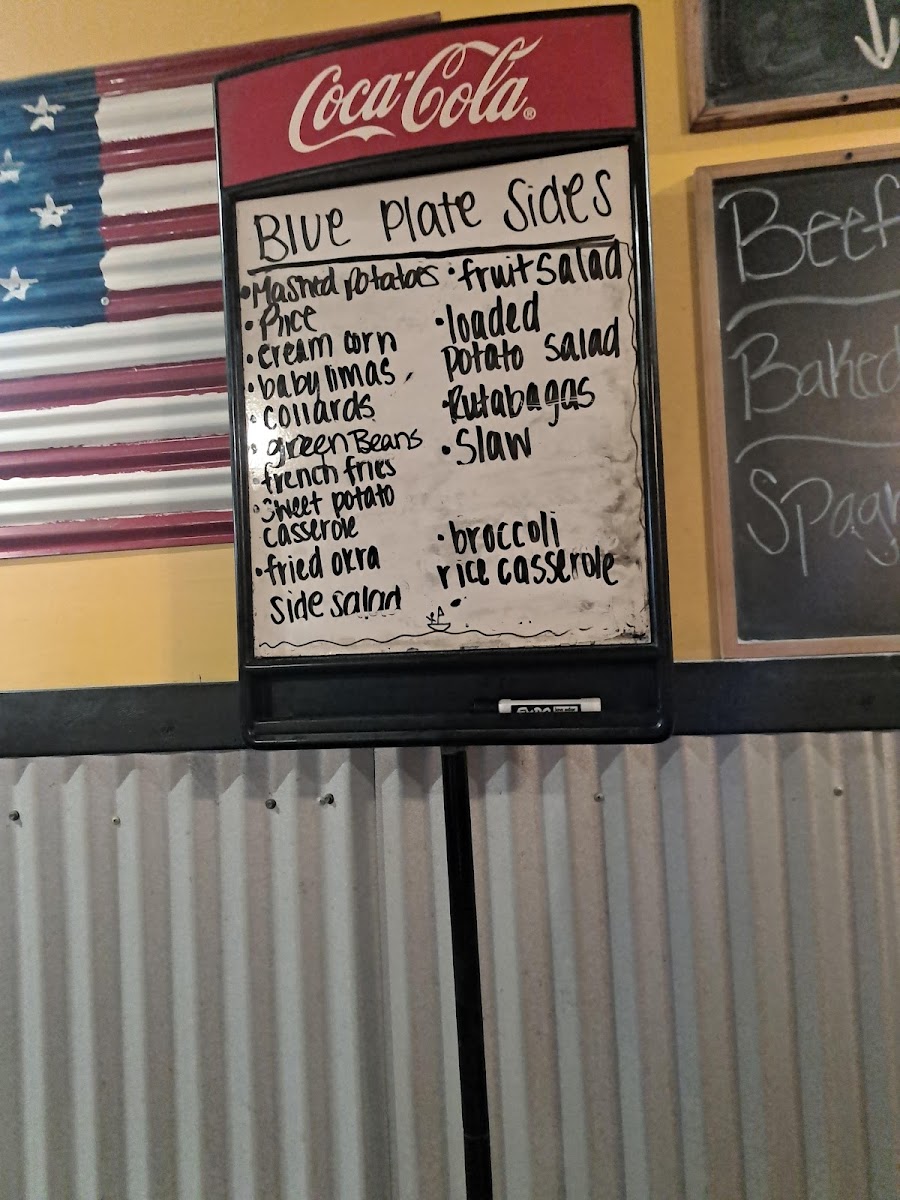 Coca-Cola®
Blue Plate Sides
•Mashed potatoes
•Rice
•cream corn
•baby limas
•collards
•green Beans
•french fries
•sweet potato
casserole
•fried okra
side salad
•fruit salad
•loaded
potato salad
•Rutabagas
•Slaw
•broccoli
rice casserole
•
EXPO
Beef
Baked
Spag